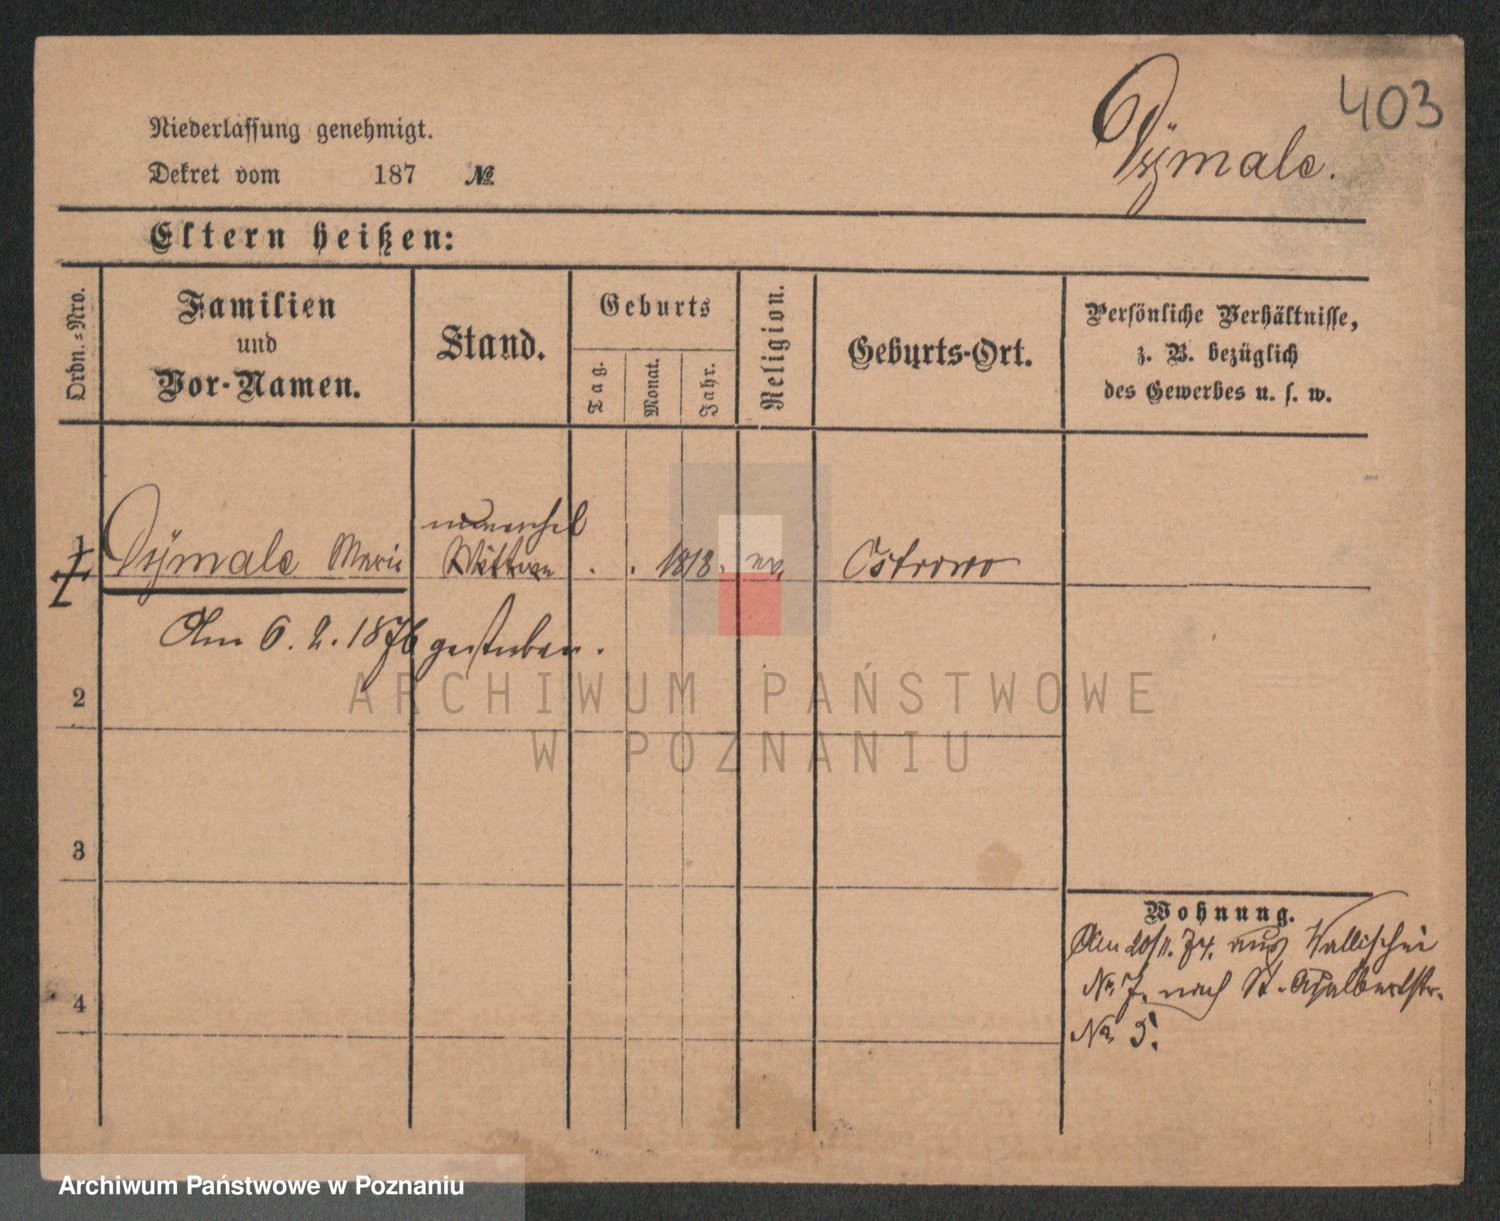 403
Dÿmale.
Niederlassung genehmigt.
Dekret vom 187 №
Eltern heißen:
Ordn.-Nro.
Familien
und
Vor-Namen.
Stand.
Geburts
Tag.
Monat.
Jahr.
Religion.
Geburts-Ort.
Persönliche Verhältnisse,
z. B. bezüglich
des Gewerbes u. s. w.
unverehel
1 Dÿmale Marie Wittwe . . 1818. ev. Ostrowo
Am 6. 2. 1876 gestorben.
2
3
4
Wohnung.
Am 20/11. 74. aus Wallischei
No 7. nach St. Adalbertstr.
No 5.
ARCHIWUM PAŃSTWOWE
W POZNANIU
Archiwum Państwowe w Poznaniu